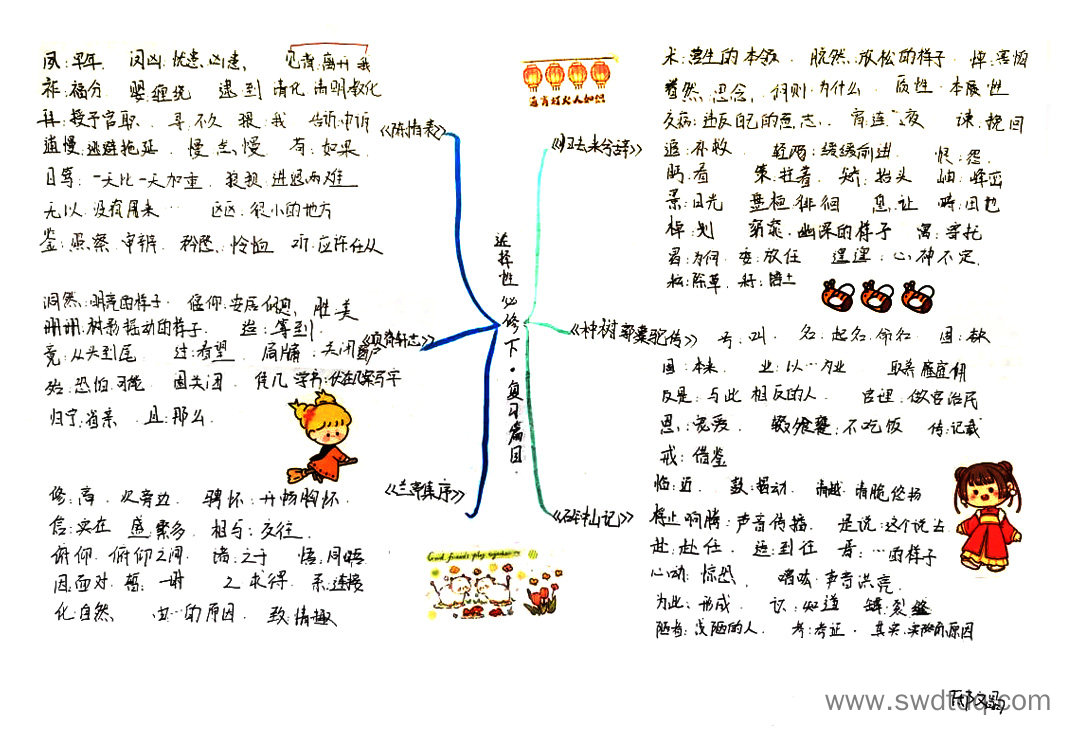 夙:早年 闵凶:忧患,凶患, 见背:离开我
祚:福分 婴:缠绕 逮:到 清化:清明教化
拜:授予官职 寻:不久 猥:我 告诉:申诉
逋慢:逃避拖延 慢:怠慢 有:如果
日笃:一天比一天加重 狼狈:进退两难
无以:没有用来… 区区:很小的地方
鉴:照察,审辨 矜愍:怜恤 听:应许任从
《陈情表》
洞然:明亮的样子 偃仰:安居 胜:美
珊珊:树影摇动的样子 迨:等到
竟:从头到尾 过:看望 扃牖:关闭窗户
《项脊轩志》
殆:恐怕,可能 固:关闭 凭几学书:伏在几案写字
归宁:省亲 且:那么
修:高 次:旁边 骋怀:开畅胸怀
信:实在 盛:繁多 相与:交往
俯仰:俯仰之间 诸:之于 悟:同晤
因:面对 暂:一时 之:求得 系:连接
化:自然 由…的原因 致:情趣
《兰亭集序》
选择性必修下·复习篇目
《归去来兮辞》
术:营生的本领 脱然:放松的样子 惮:害怕
眷然:思念 何则:为什么 质性:本质,性
交病:违反自己的意志 宵:连夜 谏:挽回
追:补救 轻飏:缓缓前进 恨:怨
眄:看 策:拄着 矫:抬头 岫:峰峦
景:日光 盘桓:徘徊 息:让 畴:田地
棹:划 窈窕:幽深的样子 寓:寄托
曷:为何 委:放任 遑遑:心神不定
耘:除草 耔:培土
《种树郭橐驼传》
号:叫 名:起名,命名 固:本来
固:本来 业:以…为业
反是:与此相反的人 官理:做官治民
恩:宠爱 辍飧饔:不吃饭 传:记载
戒:借鉴
《石钟山记》
临:近 鼓:振动 清越:清脆悠扬
桴止响腾:声音传播 是说:这个说法
赴:赴任 适:到往 …的样子
心动:惊恐 噌吰:声音洪亮
为此:形成 识:知道 罅:裂缝
陋者:浅陋的人 考:考证 其实:实际的原因
Good friends play together
www.swdtdq.com